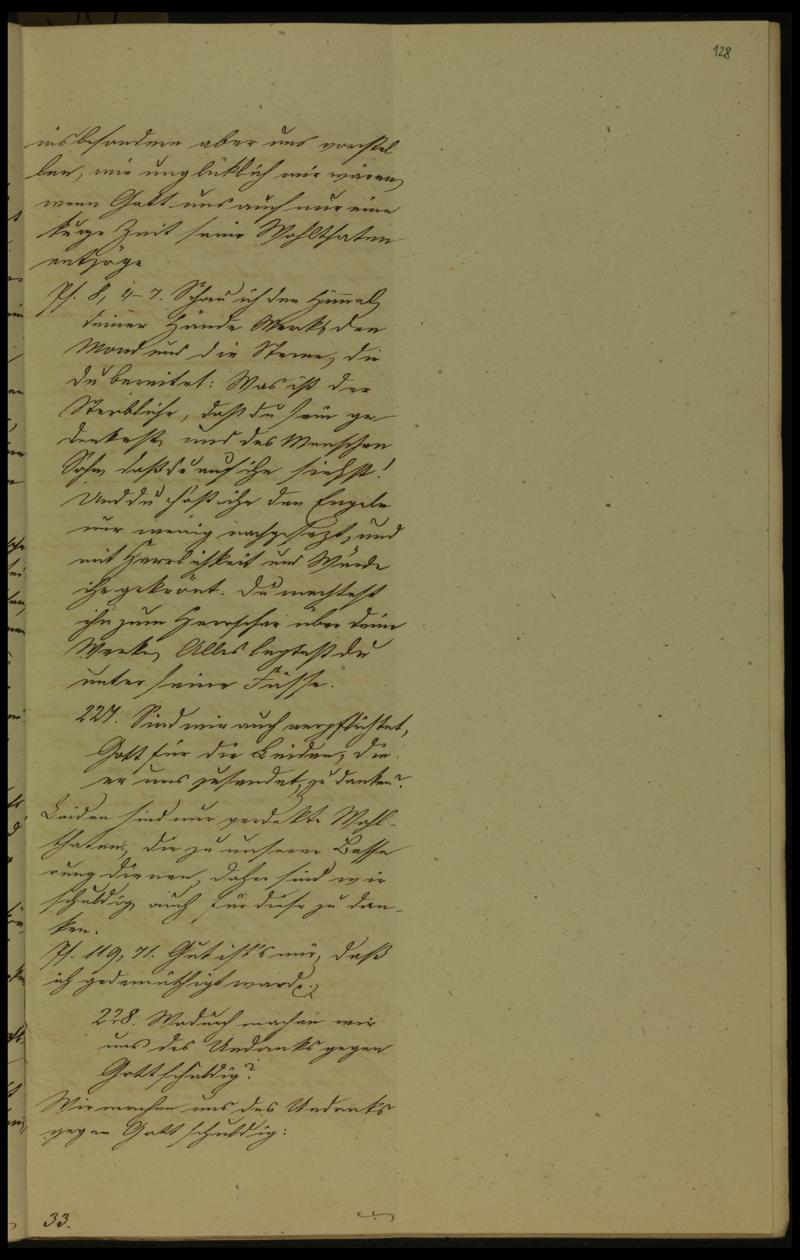 128
insbesondere aber uns vorstel
len, wie unglüklich wir wären,
wenn Gott uns auch nur eine
kurze Zeit seine Wohlthaten
entzöge
Ps. 8, 4-7. Schau ich den Himmel,
deiner Hände Werk, den
Mond und die Sterne, die
du bereitet: Was ist der
Sterbliche, daß du sein ge-
denkest, und des Menschen
Sohn daß du auf ihn siehst!
Und du hast ihn den Engeln
nur wenig nachgesezt, und
mit Herrlichkeit und Würde
ihn gekrönt. Du machtest
ihn zum Herrscher über deine
Werke, Alles legtest du
unter seine Füsse.
227. Sind wir auch verpflichtet,
Gott für die Leiden, die
er uns zusendet, zu danken?
Leiden sind nur verdekte Wohl-
thaten, die zu unserer Besse
rung dienen, daher sind wir
schuldig auch für diese zu dan-
ken.
Ps. 119, 71. Gut ist's mir, daß
ich gedemüthigt ward.
228. Wodurch machen wir
uns des Undanks gegen
Gott schuldig?
Wir machen uns des Undanks
gegen Gott schuldig:
33.